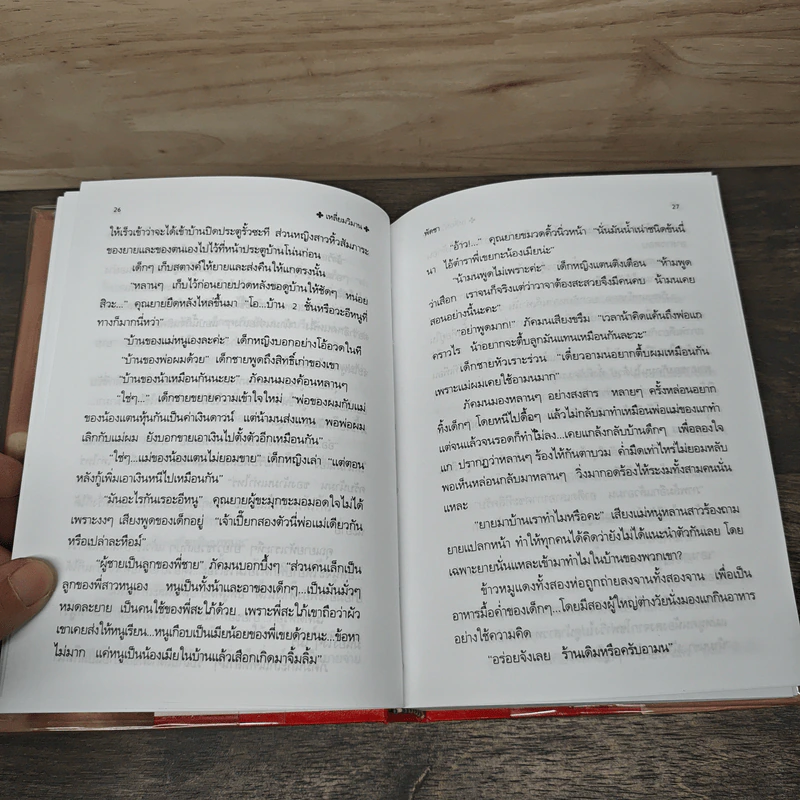 26
✤ เหลี่ยมวิมาน ✤
ให้เร็วเข้าว่าจะได้เข้าบ้านปิดประตูรั้วซะที ส่วนหญิงสาวหิ้วสัมภาระ
ของยายและของตนเองไปไว้ที่หน้าประตูบ้านโน่นก่อน
เด็กๆ เก็บสตางค์ให้ยายและส่งคืนให้แกตรงนั้น
“หลานๆ เก็บไว้ก่อนยายปวดหลังขอดูบ้านให้ชัดๆ หน่อย
สิวะ...” คุณยายยืดหลังไหล่ขึ้นมา “โอ...บ้าน 2 ชั้นหรือวะอีหนูที่
ทางก็มากนี่หว่า”
“บ้านของแม่หนูเองละค่ะ” เด็กหญิงบอกอย่างโอ้อวดในที
“บ้านของพ่อผมด้วย” เด็กชายพูดถึงสิทธิ์เก่าของเขา
“บ้านของน้าเหมือนกันนะยะ” ภัคมนมองค้อนหลานๆ
“ใช่ๆ...” เด็กชายขยายความเข้าใจใหม่ “พ่อของผมกับแม่
ของน้องแตนหุ้นกันเป็นค่าเงินดาวน์ แต่น้ามนส่งแทน พอพ่อผม
เลิกกับแม่ผม ยังบอกขายเอาเงินไปตั้งตัวอีกเหมือนกัน”
“ใช่ๆ...แม่ของน้องแตนไม่ยอมขาย” เด็กหญิงเล่า “แต่ตอน
หลังกู้เพิ่มเอาเงินหนีไปเหมือนกัน”
“มันอะไรกันเรอะอีหนู” คุณยายผู้ชะมุกชะมอมอดใจไม่ได้
เพราะงงๆ เสียงพูดของเด็กอยู่ “เจ้าเปี๊ยกสองตัวนี่พ่อแม่เดียวกัน
หรือเปล่าละหือม์”
“ผู้ชายเป็นลูกของพี่ชาย” ภัคมนบอกบึ้งๆ “ส่วนคนเล็กเป็น
ลูกของพี่สาวหนูเอง หนูเป็นทั้งน้าและอาของเด็กๆ...เป็นมันมั่วๆ
หมดละยาย เป็นคนใช้ของพี่สะใภ้ด้วย เพราะพี่สะใภ้เขาถือว่าผัว
เขาเคยส่งให้หนูเรียน...หนูเกือบเป็นเมียน้อยของพี่เขยด้วยนะ...ข้อหา
ไม่มาก แค่หนูเป็นน้องเมียในบ้านแล้วเสือกเกิดมาจิ้มลิ้ม”
27
พัดชา
“อ้าว!...” คุณยายขมวดคิ้วนิ่วหน้า “นั่นมันน้ำเน่าชนิดขันนี่
นา ไอ้ตำราพี่เขยกะน้องเมียน่ะ”
“น้ามนพูดไม่เพราะค่ะ” เด็กหญิงแตนติงเตือน “ห้ามพูด
ว่าเสือก เราจนก็จริงแต่ว่าวาจาต้องสะสวยจึงมีคนคบ น้ามนเคย
สอนอย่างนี้นะคะ”
“อย่าพูดมาก!” ภัคมนเสียงขรึม “เวลาน้าคิดแค้นถึงพ่อแก
คราวไร น้าอยากจะตื้บลูกมันแทนเหมือนกันละวะ”
เด็กชายหัวเราะร่วน “เดี๋ยวอามนอยากตื้บผมเหมือนกัน
เพราะแม่ผมเคยใช้อามนมาก”
ภัคมนมองหลานๆ อย่างสงสาร หลายๆ ครั้งหล่อนอยาก
ทิ้งเด็กๆ โดยหนีไปดื้อๆ แล้วไม่กลับมาทำเหมือนพ่อแม่ของแกทำ
แต่จนแล้วจนรอดก็ทำไม่ลง...เคยแกล้งกลับบ้านดึกๆ เพื่อลองใจ
แก ปรากฏว่าหลานๆ ร้องไห้กันตาบวม ค่ำมืดเท่าไหร่ไม่ยอมหลับ
พอเห็นหล่อนกลับมาหลานๆ วิ่งมากอดร้องไห้ระงมทั้งสามคนนั่น
แหละ
“ยายมาบ้านเราทำไมหรือคะ” เสียงแม่หนูหลานสาวร้องถาม
ยายแปลกหน้า ทำให้ทุกคนได้คิดว่ายังไม่ได้แนะนำตัวกันเลย โดย
เฉพาะยายนั่นแหละเข้ามาทำไมในบ้านของพวกเขา?
ข้าวหมูแดงทั้งสองห่อถูกถ่ายลงจานทั้งสองจาน เพื่อเป็น
อาหารมื้อค่ำของเด็กๆ...โดยมีสองผู้ใหญ่ต่างวัยนั่งมองแกกินอาหาร
อย่างใช้ความคิด
“อร่อยจังเลย ร้านเดิมหรือครับอามน”